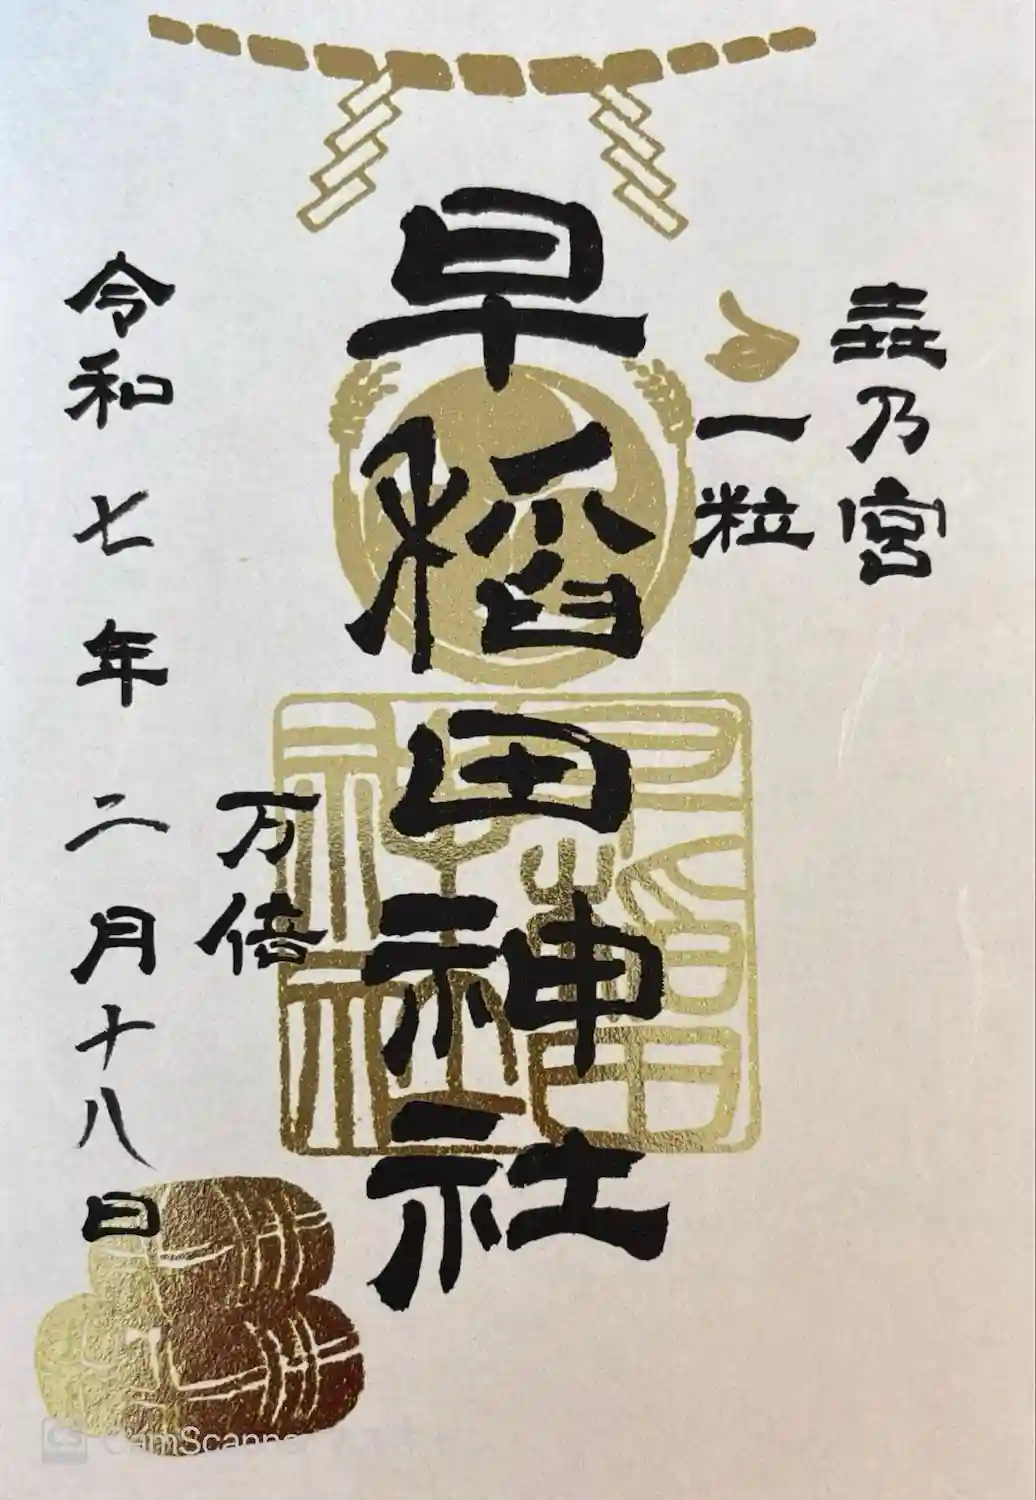 乃宮
一粒
早稻田神社
早稻田
神社
万倍
令和七年二月十八日
CS CamScanner